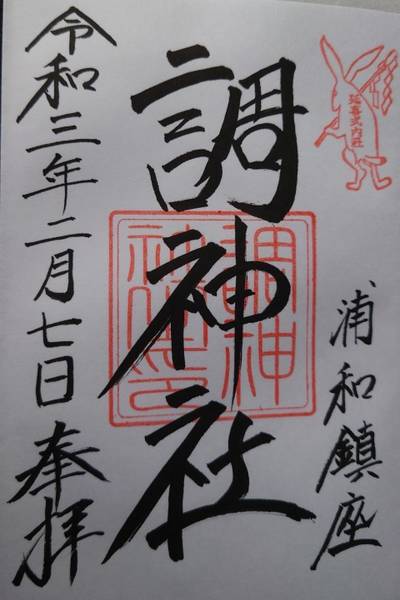 延喜式内社
浦和鎮座
調神社
調神社之印
令和三年二月七日
奉拝